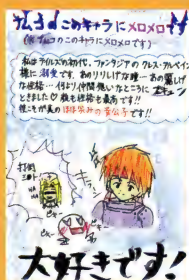 私はこのキャラにメロメロ
(※ブルコのこのキャラにメロメロです)
私はテイルズの初代、ファンタジアのクレス・アルベイン
様に溺愛です。あのりりしげな瞳…あの麗しげ
な性格…何より、仲間思いなところに
ときめき♡顔も性格も最高です!!
僕こそが真のほほ笑みの貴公子です!!
打倒
大好きです!